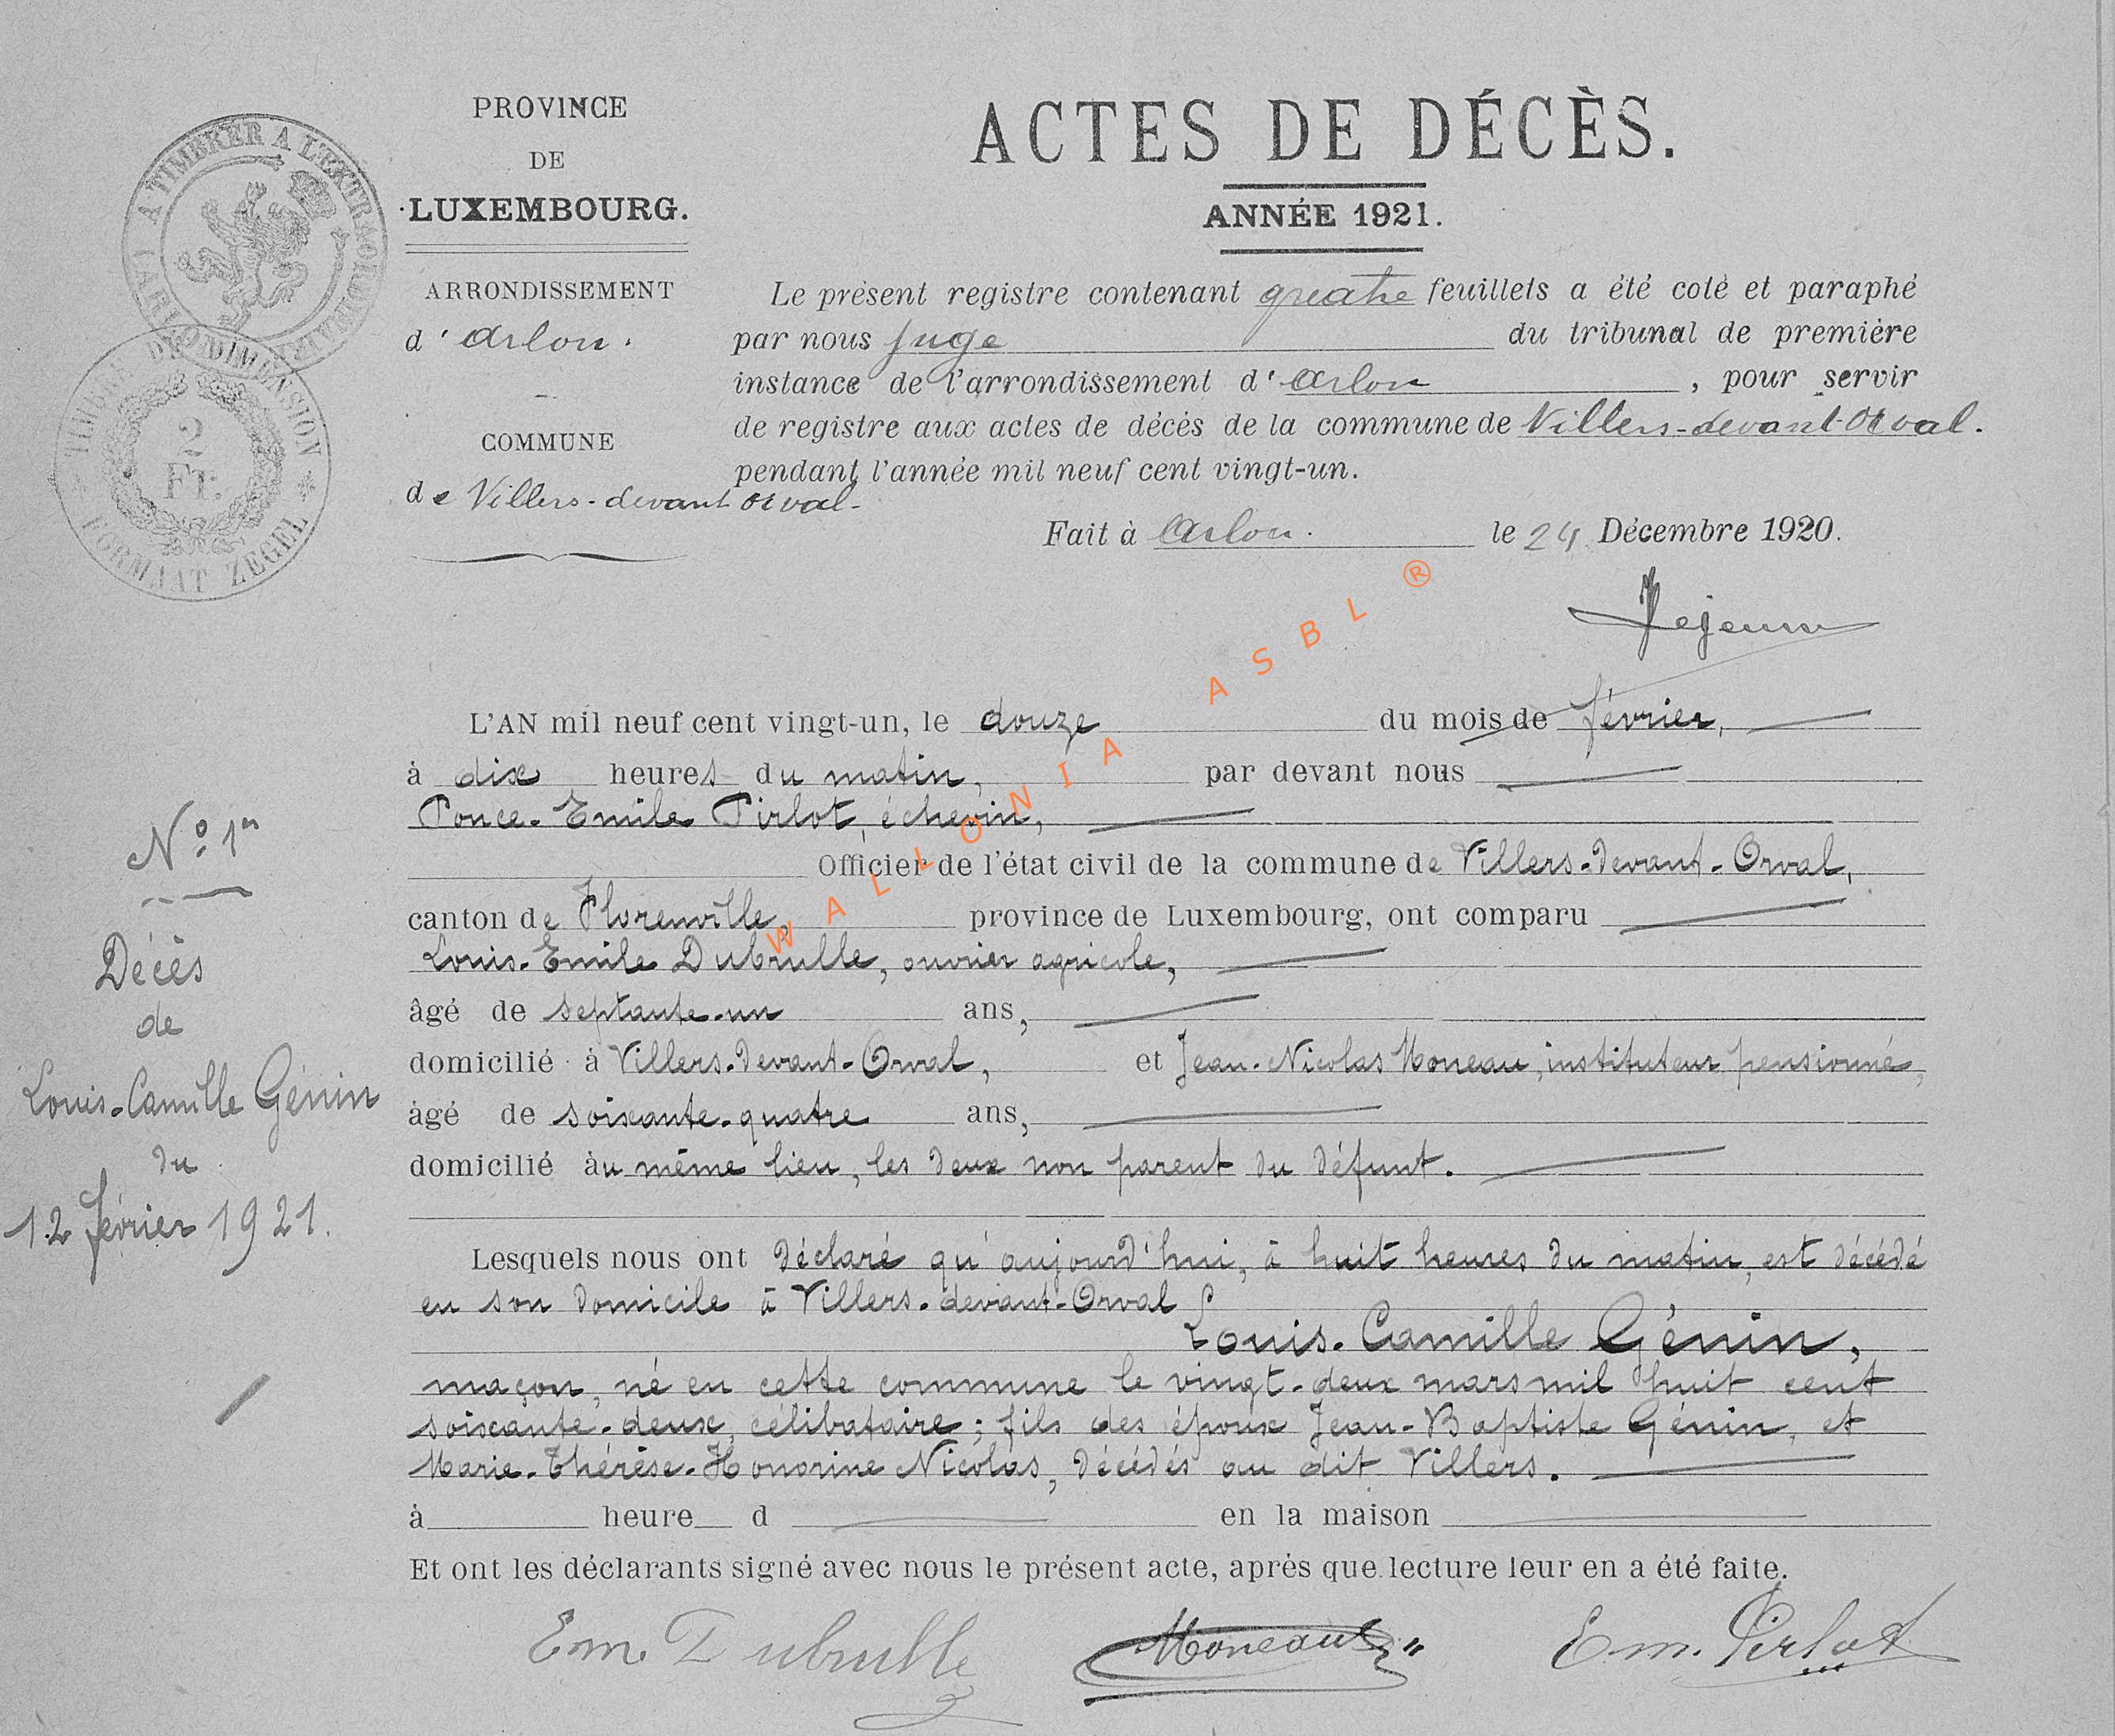 PROVINCE
DE
LUXEMBOURG.
ARRONDISSEMENT
d'Arlon.
COMMUNE
de Villers-devant Orval.
A TIMBRER A L'EXTRAORDINAIRE (ARLON)
TIMBRE DE DIMENSION
2
Fr.
FORMAAT ZEGEL
ACTES DE DÉCÈS.
ANNÉE 1921.
Le présent registre contenant quatre feuillets a été coté et paraphé
par nous Juge du tribunal de première
instance de l'arrondissement d'Arlon, pour servir
de registre aux actes de décès de la commune de Villers-devant-Orval.
pendant l'année mil neuf cent vingt-un.
Fait à Arlon. le 24 Décembre 1920.
Lejeune
WALLONIA ASBL ®
N° 1er
Décès
de
Louis-Camille Génin
du
12 février 1921.
L'AN mil neuf cent vingt-un, le douze du mois de février,
à dix heures du matin, par devant nous
Ponce-Emile Pirlot, échevin,
Officier de l'état civil de la commune de Villers-devant-Orval,
canton de Florenville, province de Luxembourg, ont comparu
Louis-Emile Dubrulle, ouvrier agricole,
âgé de septante-un ans,
domicilié à Villers-devant-Orval, et Jean-Nicolas Moneau, instituteur pensionné,
âgé de soixante-quatre ans,
domicilié au même lieu, les deux non parent du défunt.
Lesquels nous ont déclaré qu'aujourd'hui, à huit heures du matin, est décédé
en son domicile à Villers-devant-Orval
Louis-Camille Génin,
maçon, né en cette commune le vingt-deux mars mil huit cent
soixante-deux, célibataire; fils des époux Jean-Baptiste Génin, et
Marie-Thérèse-Honorine Nicolas, décédés au dit Villers.
à heure d en la maison
Et ont les déclarants signé avec nous le présent acte, après que lecture leur en a été faite.
Em. Dubrulle Moneau Em. Pirlot